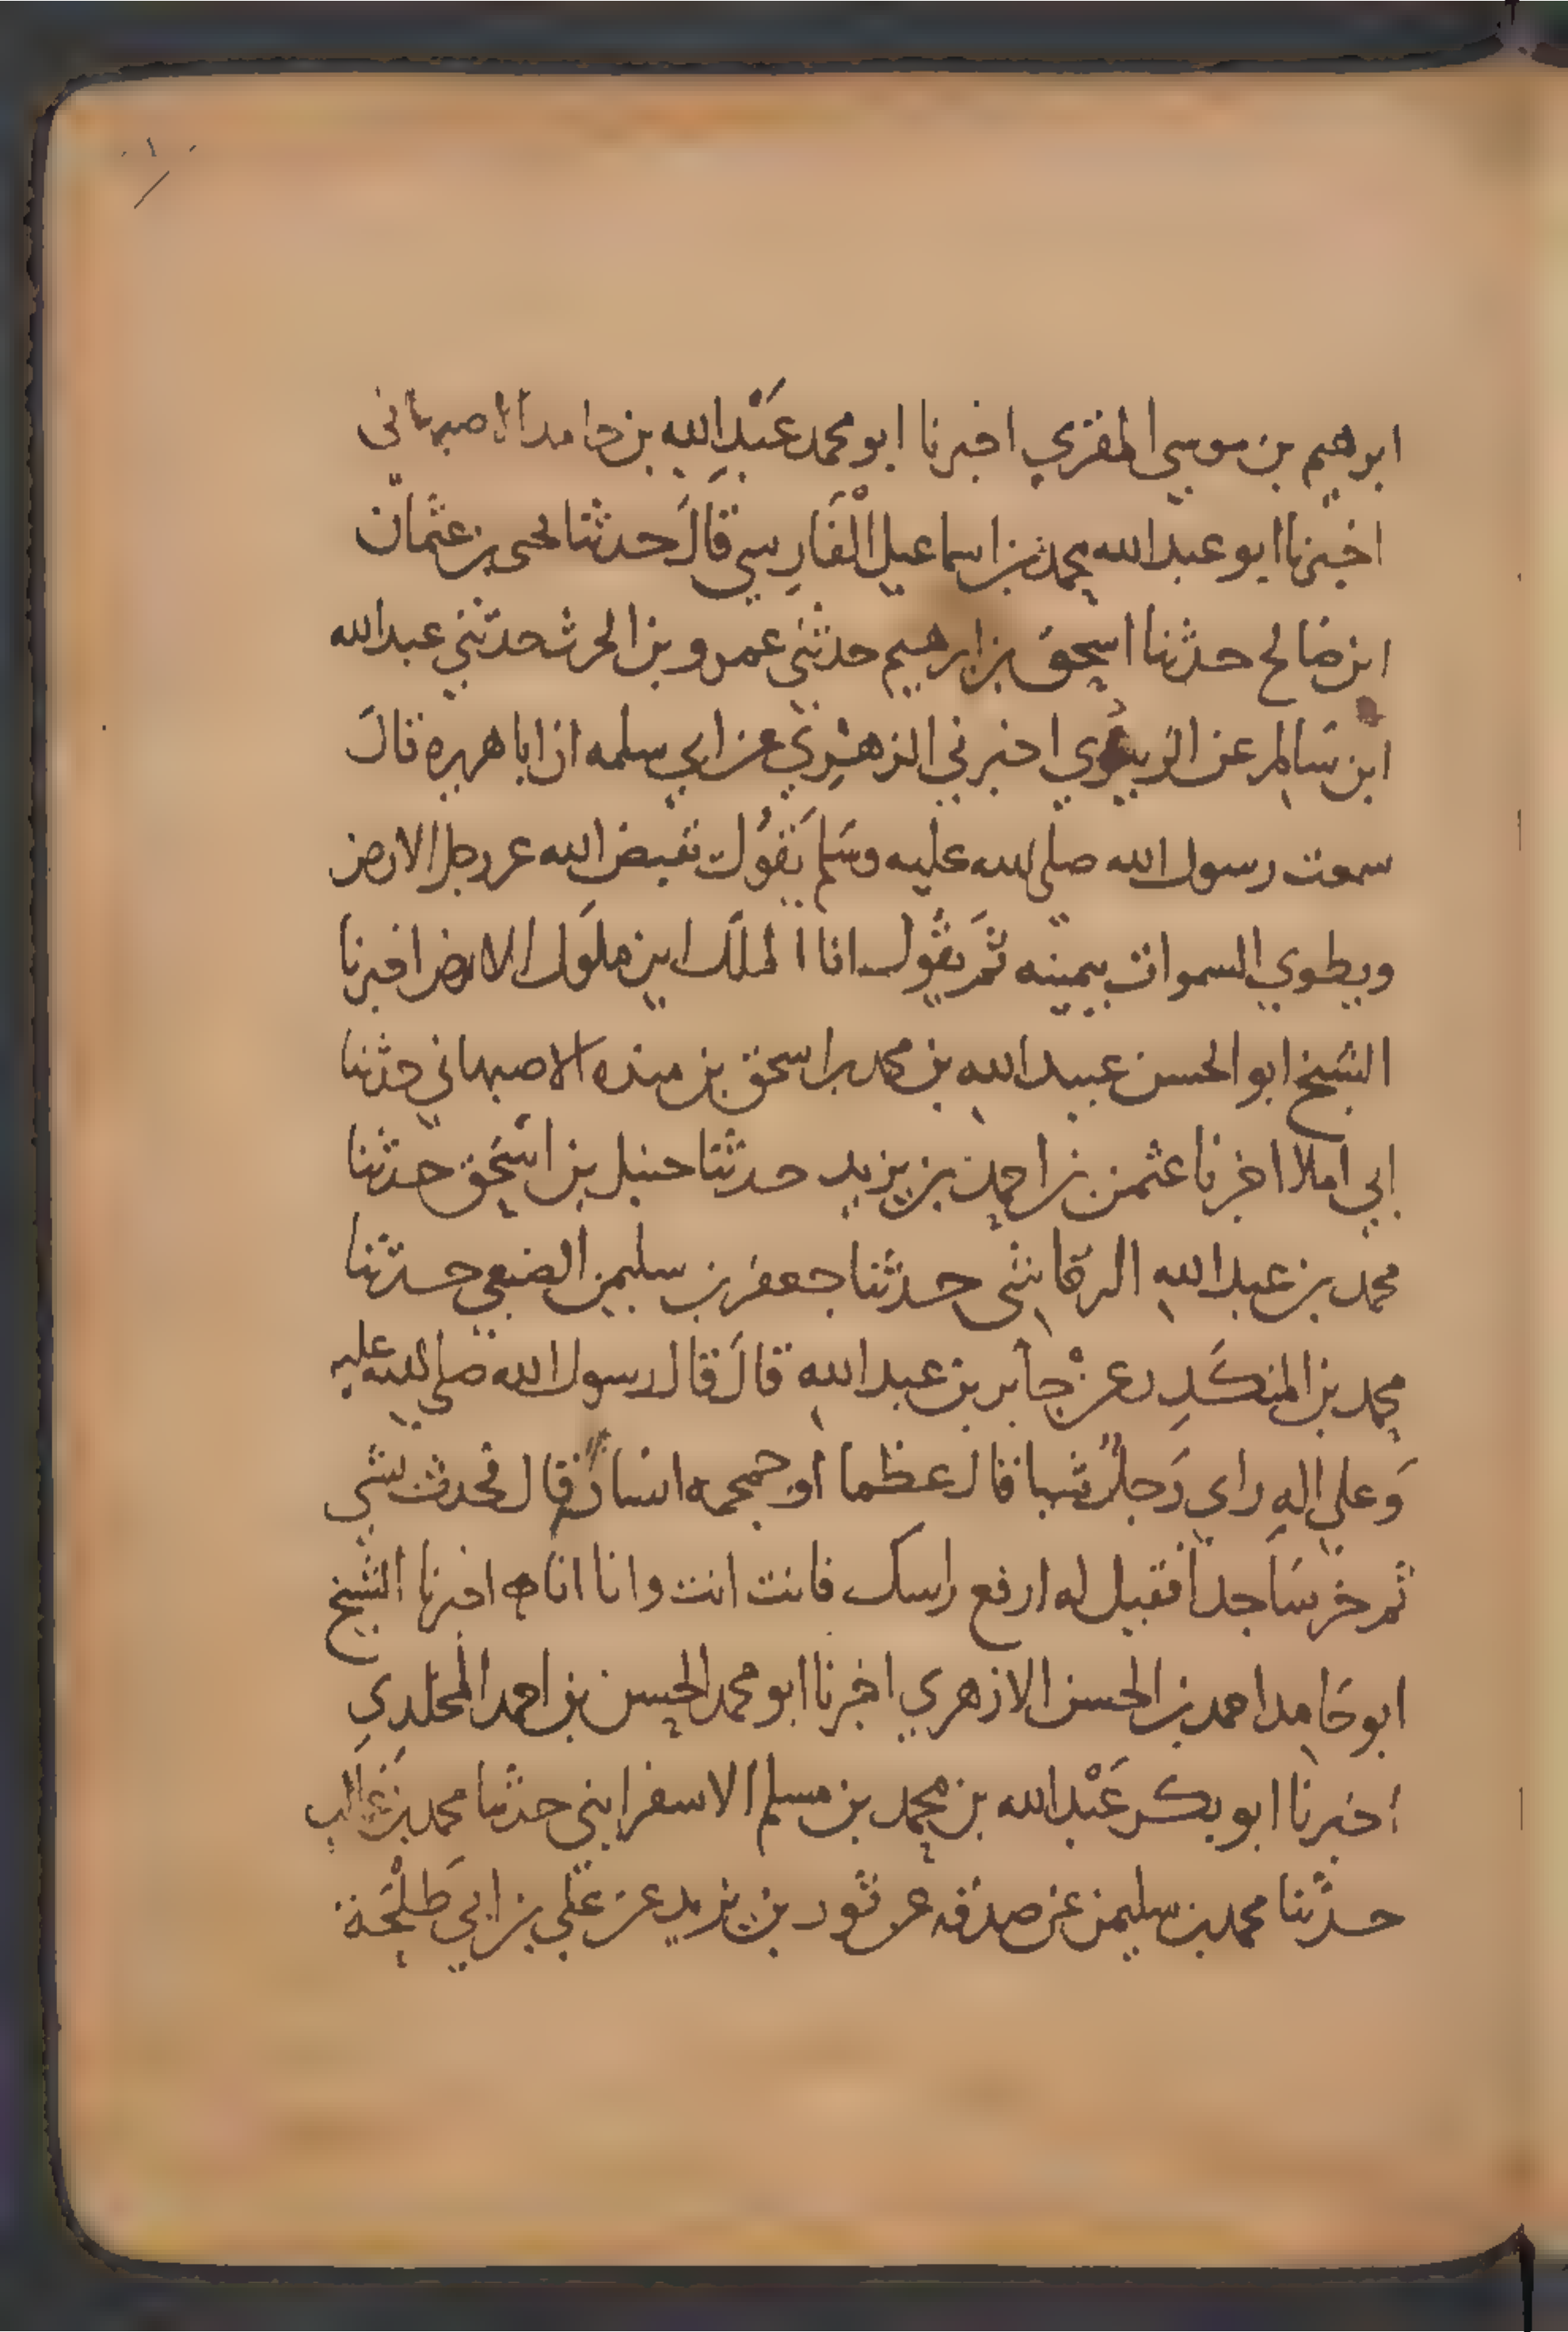 ١٠
ابرهيم بن موسى المقري اخبرنا ابو محمد عَبْدِ الله بن حامد الاصبهاني
اخبرنا ابو عبد الله محمد بن اسماعيل الْفَارِسي قَالَ حدثنا يحيى بن عثمان
ابن صَالح حدثنا اسحق بن ابرهيم حدثني عمرو بن الحرث حدثني عبد الله
ابن سَالم عن الزبيدي اخبرني الزهْرِي عن ابي سلمه ان ابا هريره قالَ
سمعت رسول الله صلى الله عليه وسَلم يَقُول يقبض الله عز وجل الارض
ويطوي السموات بيمينه ثمَّ يقُول انا الملك اين ملوَك الارض اخبرنا
الشيخ ابو الحسن عبيد الله بن محمد بن اسحق بن منده الاصبهاني حدثنا
ابي املا اخبرنا عثمن بن احمد بن يزيد حدثنا حنبل بن اسْحَق حدثنا
محمد بن عبد الله الرقاشى حدثنا جعفر بن سليمن الضبعي حدثنا
محمد بن المنكَدِر عنْ جاَبر بن عبد الله قالَ قال رسول الله صلى الله عليه
وَعلى الهِ راى رَجلٌ شيا قال عظما او جمجمه انسَان قال فحدث بشي
ثم خر سَاجداً فقيل له ارفع راسك فانت انت وانا انا ه اخبرنا الشيخ
ابو حَامِد احمد بن الحسن الازهري اخبرنا ابو محمد الحسن بن احمد المخلدي
اخبرنا ابو بكر عَبْد الله بن محمد بن مسلم الاسفرايني حدثنا محمد بن غَالب
حدثنا محمد بن سليمن عن صدقه عن ثور بن يزيد عن عَلي بن ابي طَلْحَة